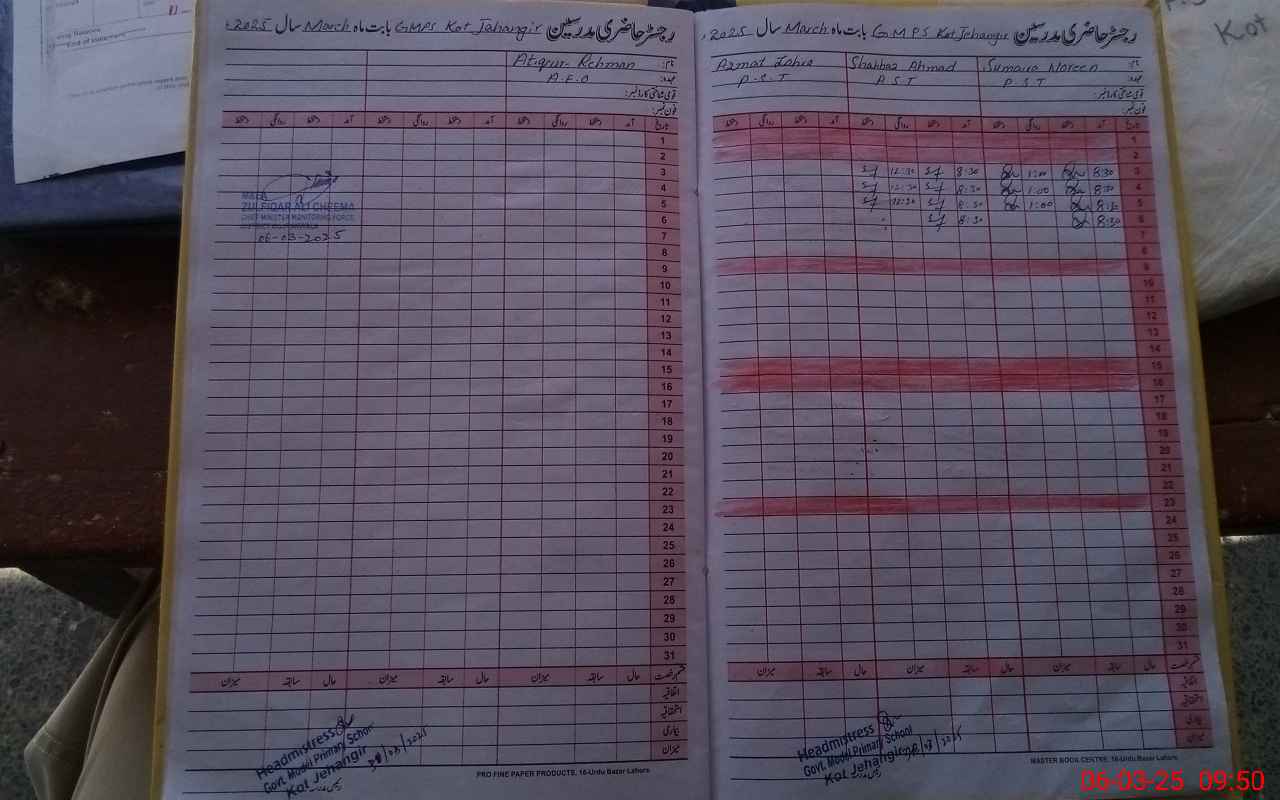 رجسٹر حاضری مدرسین GMPS Kot Jahangir بابت ماہ March سال 2025
نام: Atiqur-Rehman
عہدہ: A.E.O
قومی شناختی کارڈ نمبر:
فون نمبر:
تاریخ آمد دستخط روانگی دستخط آمد دستخط روانگی دستخط آمد دستخط روانگی دستخط
1
2
3
4
5
6
7
8
9
10
11
12
13
14
15
16
17
18
19
20
21
22
23
24
25
26
27
28
29
30
31
ZULFIQAR ALI CHEEMA
CHIEF MINISTER MONITORING FORCE
06-03-2025
حال سابقہ میزان حال سابقہ میزان حال سابقہ میزان
اتفاقیہ
استحقاقیہ
بیماری
میزان
Headmistress
Govt. Model Primary School
Kot Jehangir
PRO FINE PAPER PRODUCTS, 16-Urdu Bazar Lahore
رجسٹر حاضری مدرسین GMPS Kot Jehangir بابت ماہ March سال 2025
نام: Sumaira Noreen Shahbaz Ahmad
عہدہ: P.S.T P.S.T P.S.T
قومی شناختی کارڈ نمبر:
فون نمبر:
تاریخ آمد دستخط روانگی دستخط آمد دستخط روانگی دستخط آمد دستخط روانگی دستخط
1
2
3 8:30 1:00 8:30 12:30
4 8:30 1:00 8:30 12:30
5 8:30 1:00 8:30 12:30
6 8:30 8:30
7
8
9
10
11
12
13
14
15
16
17
18
19
20
21
22
23
24
25
26
27
28
29
30
31
حال سابقہ میزان حال سابقہ میزان حال سابقہ میزان
اتفاقیہ
استحقاقیہ
بیماری
میزان
Headmistress
Govt. Model Primary School
Kot Jehangir
MASTER BOOK CENTRE, 16-Urdu Bazar Lahore
Kot
End of statement
06-03-25 09:50